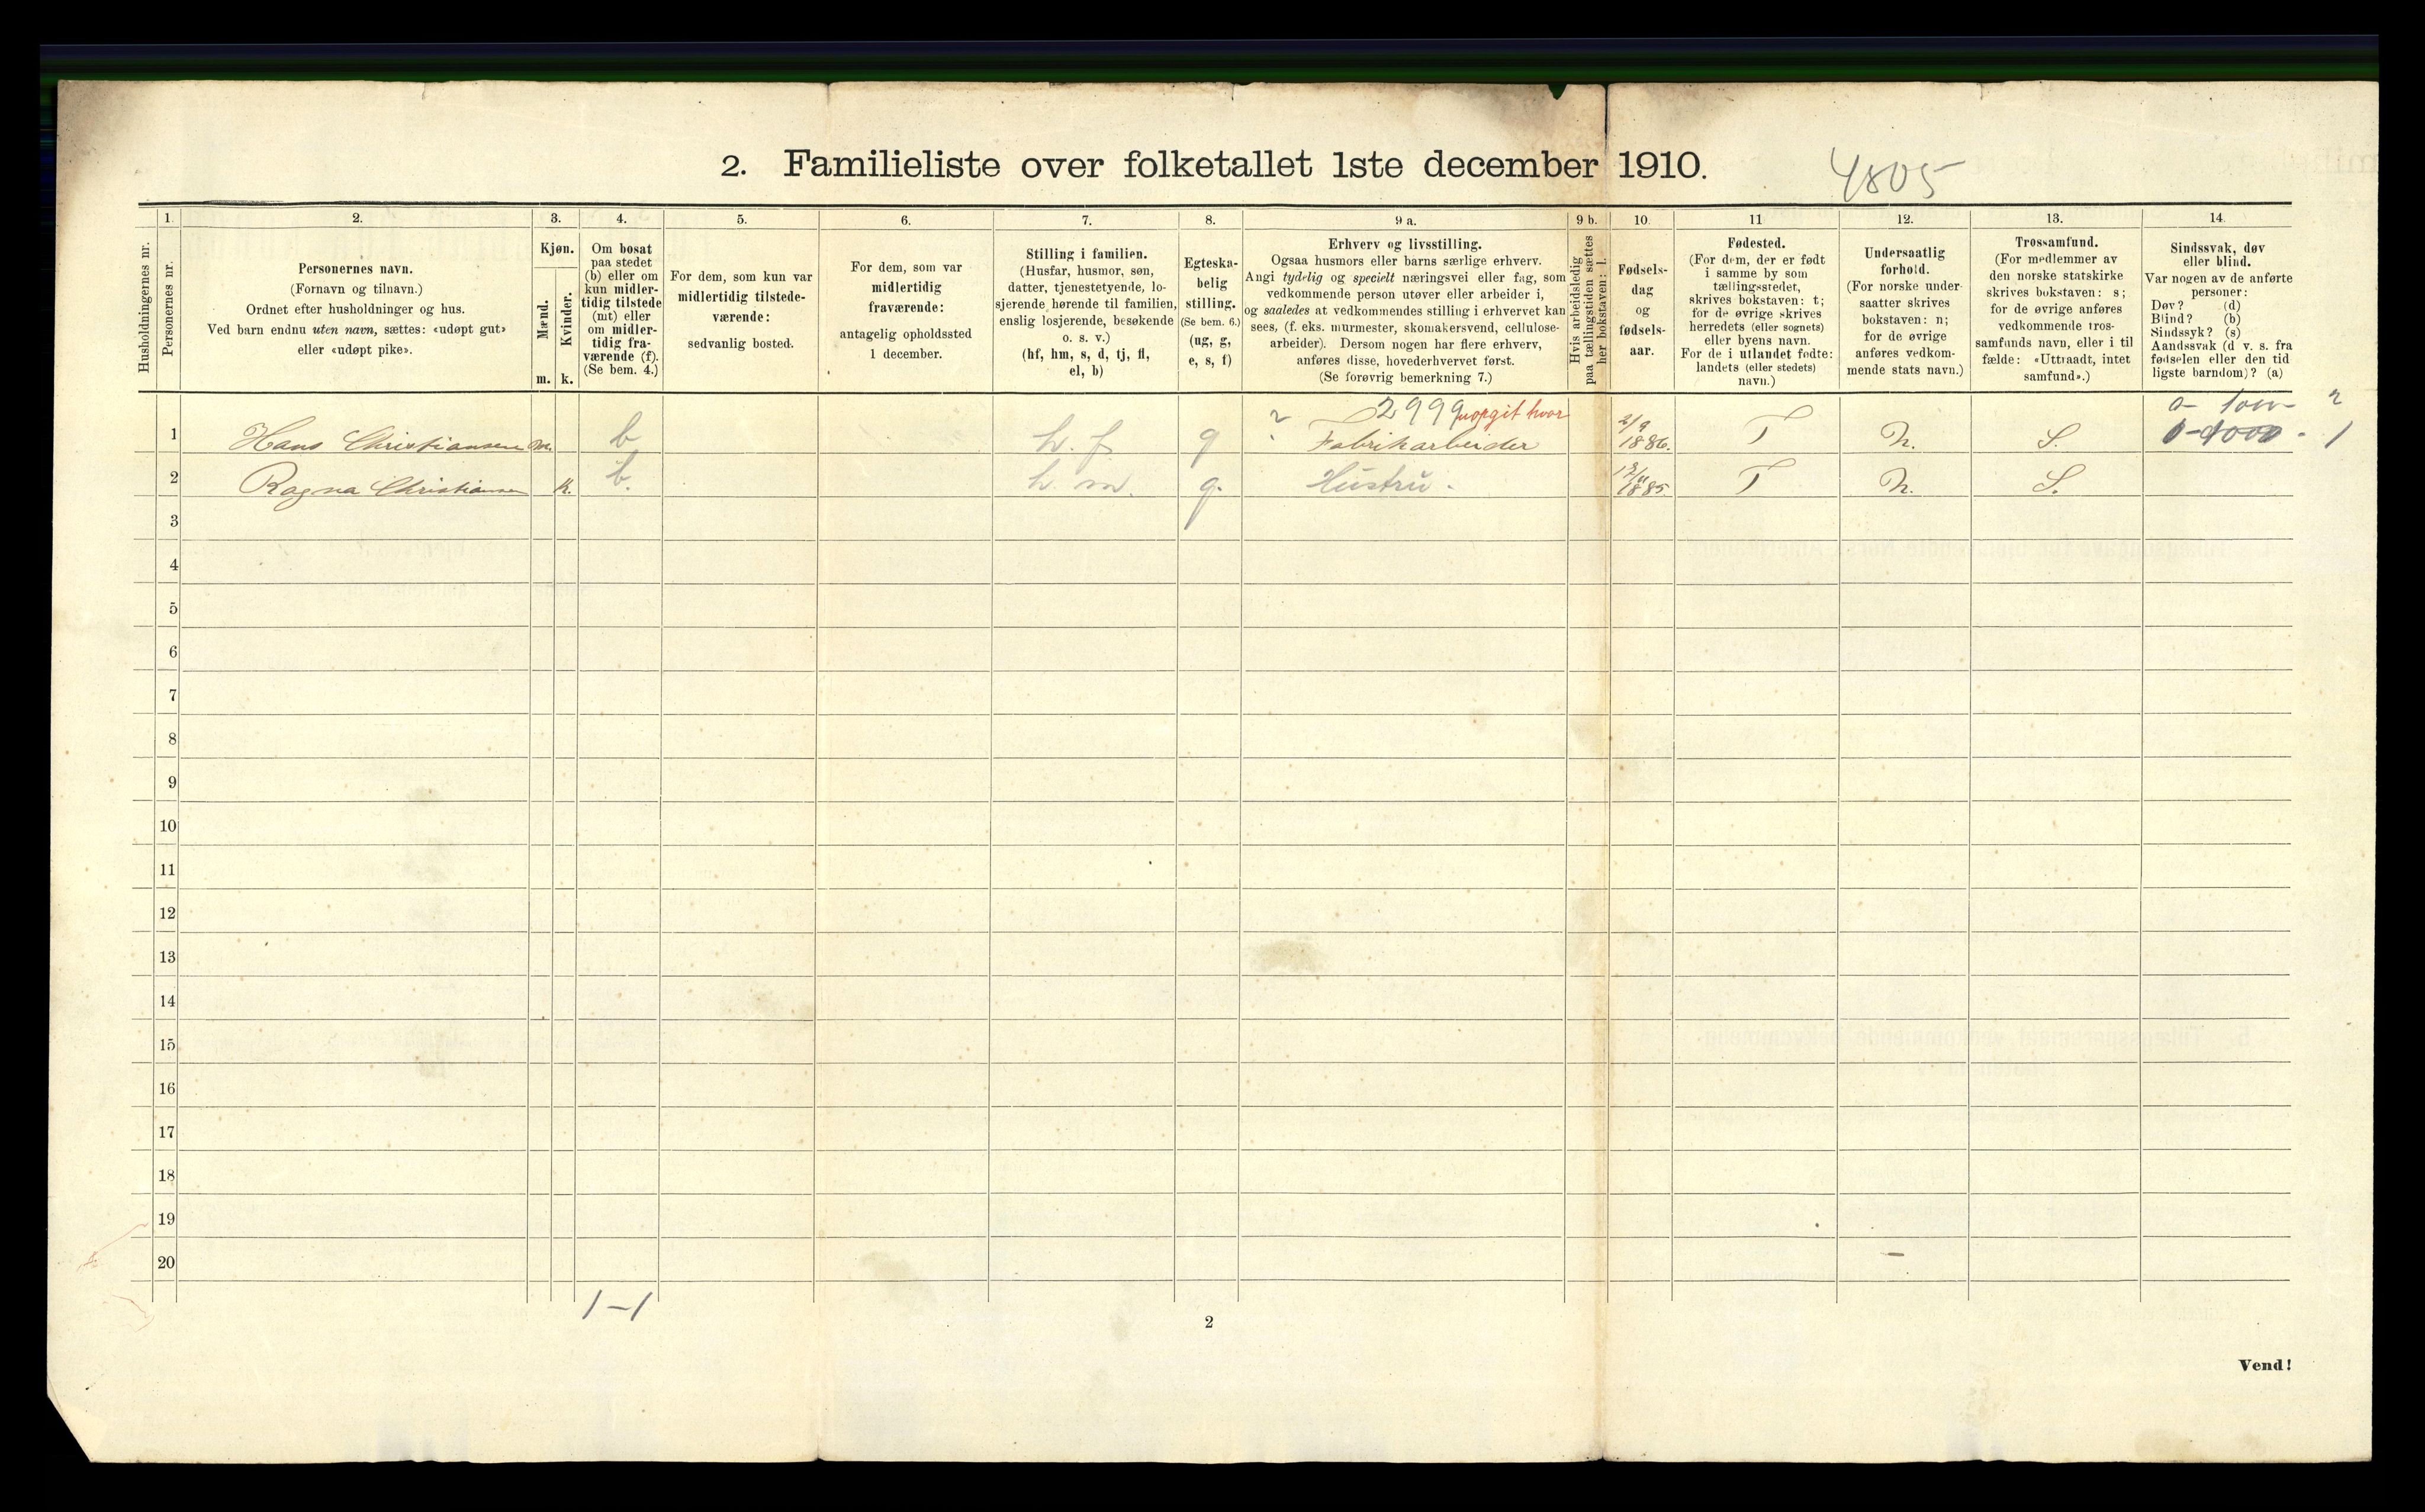 2. Familieliste over folketallet 1ste december 1910.
4805
Husholdningernes nr.
1.
Personernes nr.
2.
Personernes navn.
(Fornavn og tilnavn.)
Ordnet efter husholdninger og hus.
Ved barn endnu uten navn, sættes: «udøpt gut»
eller «udøpt pike».
3.
Kjøn.
Mænd.
Kvinder.
m. k.
4.
Om bosat
paa stedet
(b) eller om
kun midler-
tidig tilstede
(mt) eller
om midler-
tidig fra-
værende (f).
(Se bem. 4.)
5.
For dem, som kun var
midlertidig tilstede-
værende:
sedvanlig bosted.
6.
For dem, som var
midlertidig
fraværende:
antagelig opholdssted
1 december.
7.
Stilling i familien.
(Husfar, husmor, søn,
datter, tjenestetyende, lo-
sjerende hørende til familien,
enslig losjerende, besøkende
o. s. v.)
(hf, hm, s, d, tj, fl,
el, b)
8.
Egteska-
belig
stilling.
(Se bem. 6.)
(ug, g,
e, s, f)
9 a.
Erhverv og livsstilling.
Ogsaa husmors eller barns særlige erhverv.
Angi tydelig og specielt næringsvei eller fag, som
vedkommende person utøver eller arbeider i,
og saaledes at vedkommendes stilling i erhvervet kan
sees, (f. eks. murmester, skomakersvend, cellulose-
arbeider). Dersom nogen har flere erhverv,
anføres disse, hovederhvervet først.
(Se forøvrig bemerkning 7.)
9 b.
Hvis arbeidsledig
paa tællingstiden sættes
her bokstaven: l.
10.
Fødsels-
dag
og
fødsels-
aar.
11
Fødested.
(For dem, der er født
i samme by som
tællingsstedet,
skrives bokstaven: t;
for de øvrige skrives
herredets (eller sognets)
eller byens navn.
For de i utlandet fødte:
landets (eller stedets)
navn.)
12.
Undersaatlig
forhold.
(For norske under-
saatter skrives
bokstaven: n;
for de øvrige
anføres vedkom-
mende stats navn.)
13.
Trossamfund.
(For medlemmer av
den norske statskirke
skrives bokstaven: s;
for de øvrige anføres
vedkommende tros-
samfunds navn, eller i til
fælde: «Uttraadt, intet
samfund».)
14.
Sindssvak, døv
eller blind.
Var nogen av de anførte
personer:
Døv? (d)
Blind? (b)
Sindssyk? (s)
Aandssvak (d. v. s. fra
fødselen eller den tid
ligste barndom)? (a)
? 2999 uopgit hvor
1 Hans Christiansen m. b h. f g Fabrikarbeider 2/9 1886. T N. S.
2 Ragna Christiansen k. b. h. m. g. Hustru. 1885 T N. S.
3
4
5
6
7
8
9
10
11
12
13
14
15
16
17
18
19
20
1-1
2
Vend!